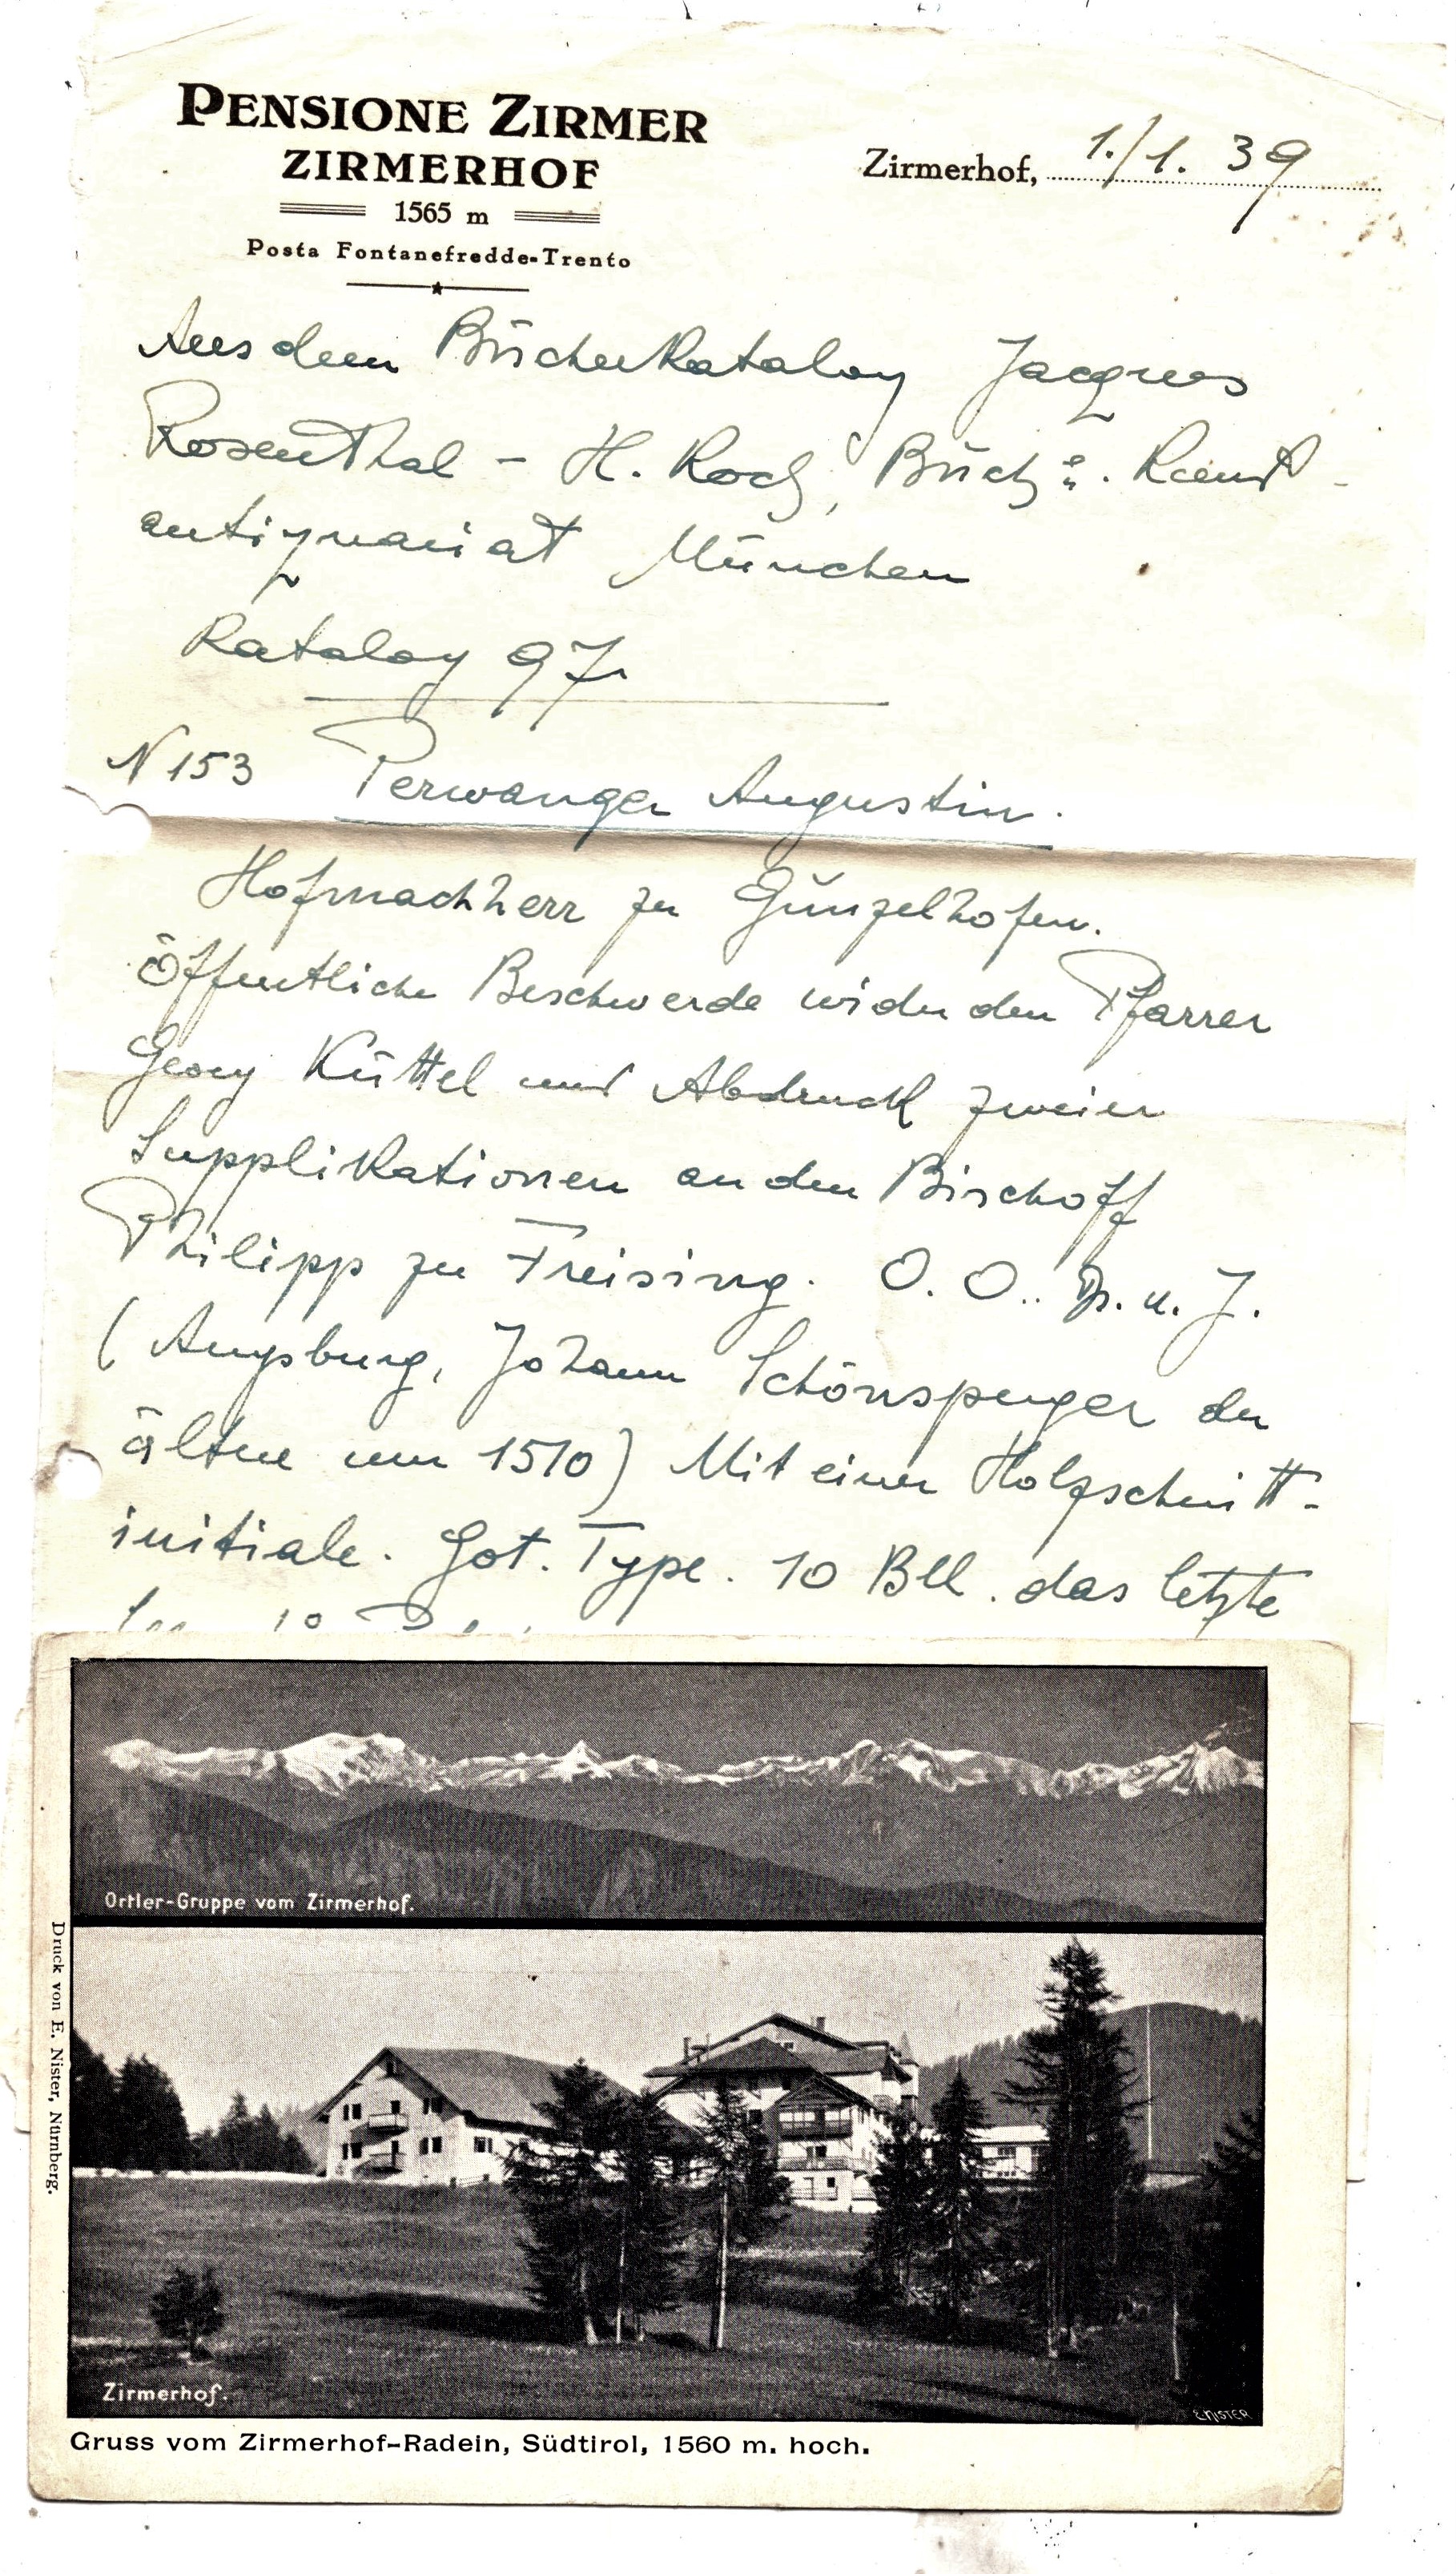 PENSIONE ZIRMER
ZIRMERHOF
1565 m
Posta Fontanefredde-Trento
Zirmerhof, 1./1. 39
Aus dem Bücherkatalog Jacques
Rosenthal - H. Koch, Buch u. Kunst-
antiquariat München
Katalog 97
N 153 Perwanger Augustin.
Hofmachherr zu Günzelhofen.
Öffentliche Beschwerde wider den Pfarrer
Georg Küttel und Abdruck zweier
Supplikationen an den Bischoff
Philipp zu Freising. O. O. Dr. u. J.
(Augsburg, Johann Schönsperger der
ältere um 1510) Mit einer Holzschnitt-
initiale. Got. Type. 10 Bll. das letzte
Ortler-Gruppe vom Zirmerhof.
Druck von E. Nister, Nürnberg.
Zirmerhof.
E. NISTER
Gruss vom Zirmerhof-Radein, Südtirol, 1560 m. hoch.